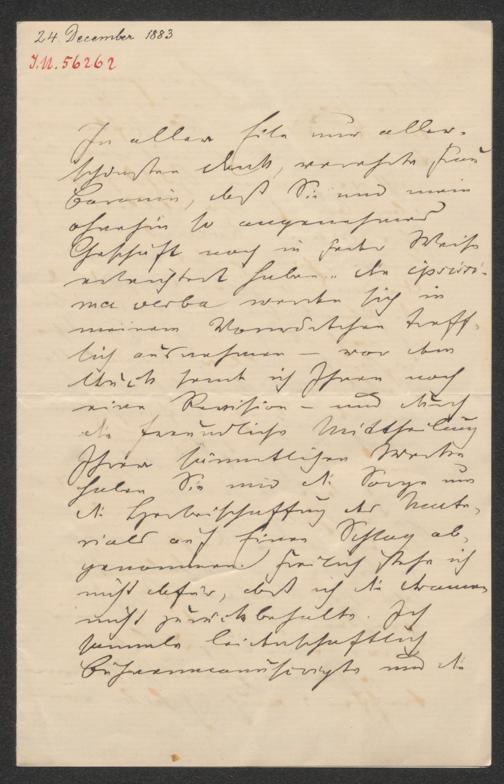 24 December 1883
I.N. 56262
In aller Eile nur aller-
schönsten Dank, verehrte Frau
Baronin, daß Sie uns mein
ohnehin so angenehmes
Geschäft noch in Weise
erleichtert haben. Die ipsissi-
ma verba werden sich in
meinem Vorwörtchen treff-
lich ausnehmen — vor dem
Druck sende ich Ihnen noch
eine Revision — und durch
die freundliche Mittheilung
Ihrer sämmtlichen Werke
haben Sie mir die Sorge um
die Herbeischaffung des Mate-
rials auf Einen Schlag ab-
genommen. Freilich stehe ich
nicht dafür, daß ich die Dramen
nicht zurückbehalte. Ich
sammle leidenschaftlich
Bühnenmanuscripte und die